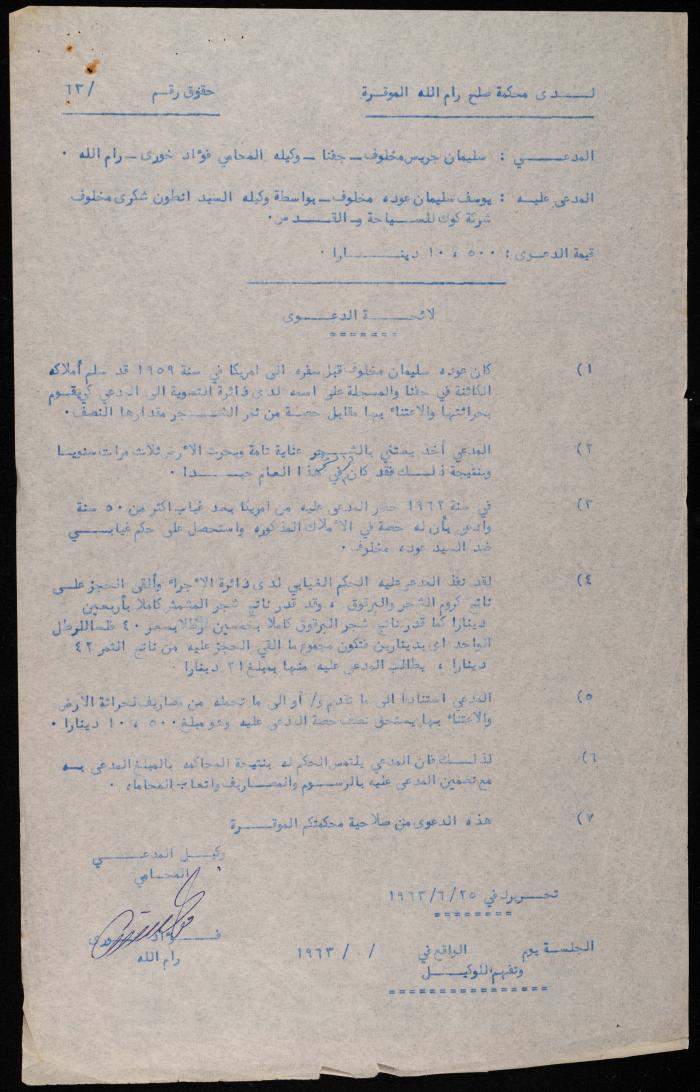 لدى محكمة صلح رام الله الموقرة
حقوق رقم / ٦٣
المدعي : سليمان جريس مخلوف - جفنا - وكيله المحامي فؤاد خورى - رام الله ٠
المدعى عليه : يوسف سليمان عوده مخلوف - بواسطة وكيله السيد انطون شكرى مخلوف
شركة كوك للسياحة - القدس ٠
قيمة الدعوى : ٥٠٠ ، ١٠ دينارا ٠
لائحة الدعوى
١) كان عوده سليمان مخلوف قبل سفره الى امريكا في سنة ١٩٥٩ قد سلم أملاكه
الكائنة في جفنا والمسجلة على اسمه لدى دائرة التسوية الى المدعي كي يقوم
بحراثتها والاعتناء بها مقابل حصة من ثمر الشجر مقدارها النصف ٠
٢) المدعي أخذ يعتني بالشجر عناية تامة ويحرث الأرض ثلاث مرات سنويا
وبنتيجة ذلك فقد كان في هذا العام جيدا ٠
٣) في سنة ١٩٦٢ حضر المدعى عليه من امريكا بعد غياب اكثر من ٥٠ سنة
وادعى بأن له حصة في الأملاك المذكوره واستحصل على حكم غيابي
ضد السيد عوده مخلوف ٠
٤) لقد نفذ المدعى عليه الحكم الغيابي لدى دائرة الأجراء وألقى الحجز على
ناتج كروم الشجر والبرقوق ، وقد قدر ناتج شجر المشمش كاملا بأربعين
دينارا كما قدر ناتج شجر البرقوق كاملا بخمسين رطلا بسعر ٤٠ فلسا للرطل
الواحد اى بدينارين فتكون مجموع ما القي الحجز عليه من ناتج الثمر ٤٢
دينارا ، يطالب المدعى عليه منها بمبلغ ٢١ دينارا ٠
٥) المدعي استنادا الى ما تقدم و/ أو الى ما تحمله من مصاريف لحراثة الارض
والاعتناء بها يستحق نصف حصة المدعى عليه وهو مبلغ ٥٠٠ ، ١٠ دينارا ٠
٦) لذلك فان المدعي يلتمس الحكم له بنتيجة المحاكمه بالمبلغ المدعى به
مع تضمين المدعى عليه بالرسوم والمصاريف واتعاب المحاماه ٠
٧) هذه الدعوى من صلاحية محكمتكم الموقرة
وكيل المدعي
المحامي
تحريرا في ٢٥/٦/١٩٦٣
فؤاد خورى
رام الله
الجلسة يوم الواقع في / / ١٩٦٣
وتفهم الوكيل